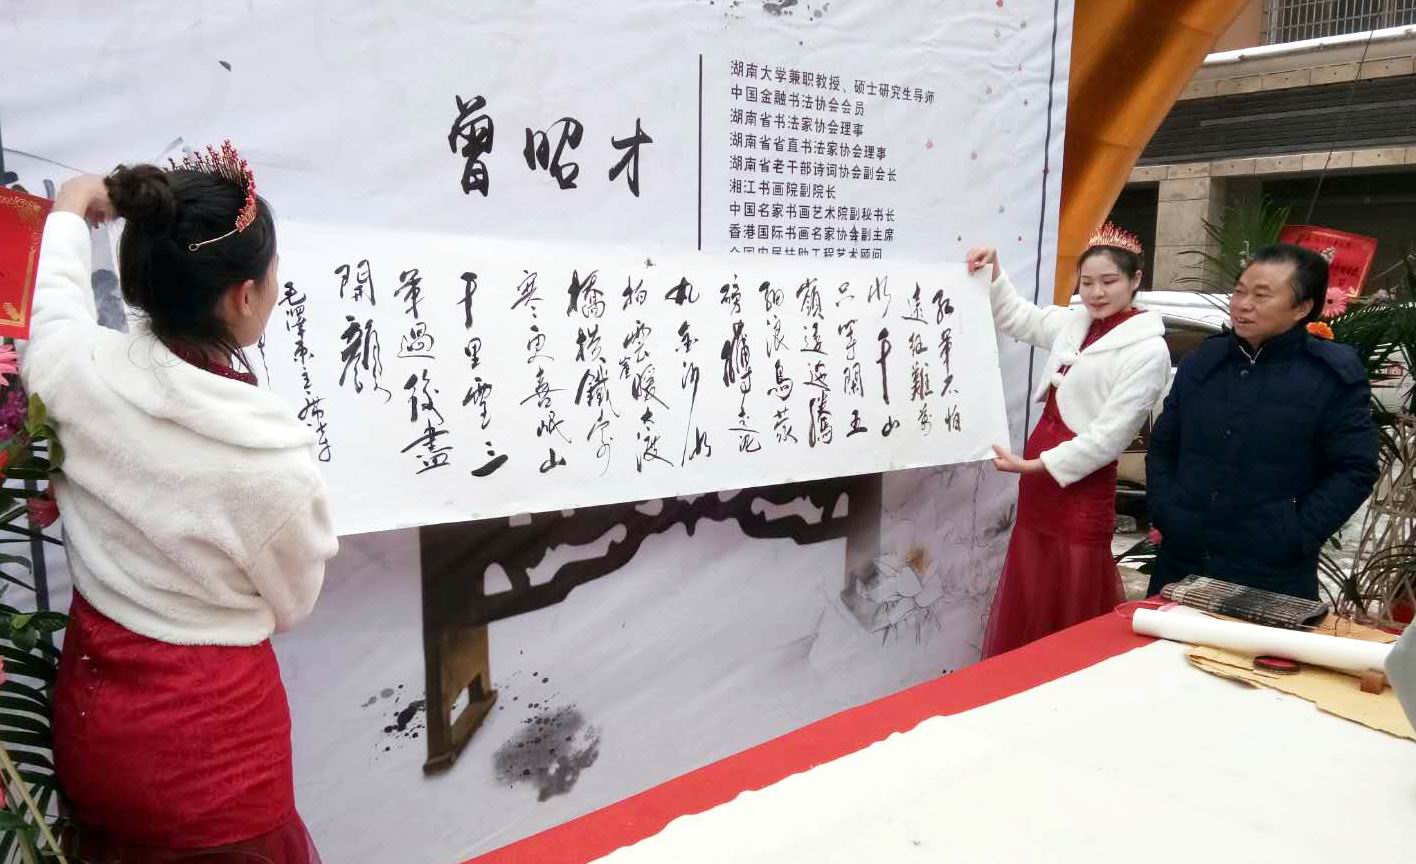 曾昭才
湖南大学兼职教授、硕士研究生导师
中国金融书法协会会员
湖南省书法家协会理事
湖南省省直书法家协会理事
湖南省老干部诗词协会副会长
湘江书画院副院长
中国名家书画艺术院副秘书长
香港国际书画名家协会副主席
扶助工程艺术顾问
紅軍不怕
遠征難萬
水千山
只等閑五
嶺逶迤騰
細浪烏蒙
磅礴走泥
丸金沙水
拍雲崖暖大渡
橋橫鐵索
寒更喜岷山
千里雪三
軍過後盡
開顏
毛澤東主席